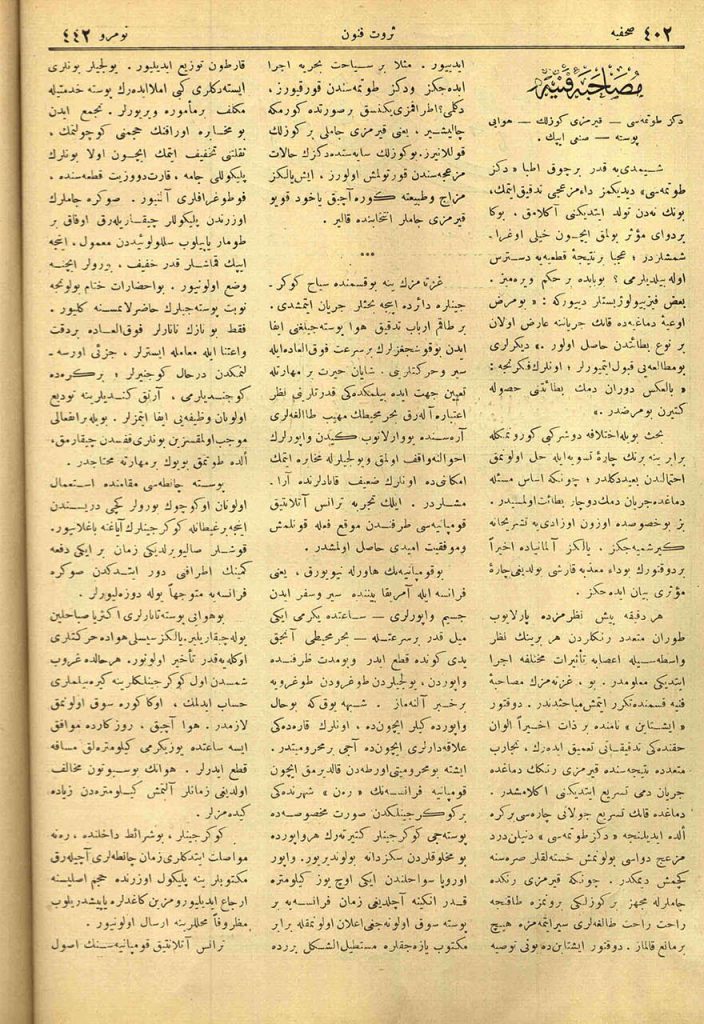 صحفیه ٤٠٢
ثروت فنون
نومرو ٤٤٢
مصاحبهٔ فنیه
دكز طوتمه‌سی — قیرمزی كوزلك — هوایی
پوسته — صنعی ایپك .
شیمدی‌یه قدر برچوق اطبا « دكز
طوتمه‌سی » دیدیكمز داء مزعجی تدقیق ایتمك،
بونك نه‌دن تولد ایتدیكنی آكلامق . بوكا
بر دوای مؤثر بولمق ایچون خیلی اوغرا .
شمشلردر ؛ عجبا بر نتیجهٔ قطعیه‌یه دسترس
اوله بیلدیلرمی ؟ بوبابده بر حكم ویره‌میز .
بعض فیزیولوژیستلر دییورکه : « بومرض
اوعیهٔ دماغیه‌ده قانك جریاننه عارض اولان
بر نوع بطائتدن حاصل اولور .» دیكرلری
بومطالعه‌یی قبول ایتمیورلر ؛ اونلرك فكرنجه :
« بالعكس دوران دمك بطائتنی حصوله
كتیرن بومرضدر .»
بحث بویله اختلافه دوشركبی كورونمكله
برابر ینه برنك چارهٔ تسویه ایله حل اولونمق
احتمالدن بعید دكلدر ؛ چونكه اساس مسئله
دماغده جریان دمك دوچار بطائت اولمسیدر .
بز بوخصوصده اوزون اوزادی‌یه تشریحاته
كیرشمیه‌جكز . یالكز آلمانیاده اخیراً
بردوقتورك بوداء معذبه قارشی بولدیغی چارهٔ
مؤثری بیان ایده جكز .
هر دقیقه پیش نظرمزده پارلایوب
طوران متعدد رنكلردن هر برینك نظر
واسطه‌سیله اعصابه تأثیرات مختلفه اجرا
ایتدیكی معلومدر . بو ، غزته‌مزك مصاحبهٔ
فنیه قسمنده تكرر ایتمش مباحثدندر . دوقتور
« ایشتاین » نامنده بر ذات اخیراً الوان
حقنده‌كی تدقیقاتنی تعمیق ایده‌رك ، تجارب
متعدده نتیجه‌سنده قیرمزی رنكك دماغده
جریان دمی تسریع ایتدیكنی آكلامشدر .
دماغده قانك تسریع جولانی چاره‌سی بركره
ألده ایدلینجه « دكز طوتمه‌سی » دنیلن درد
مزعج دواسی بولونمش خسته‌لقلر صره‌سنه
كچمش دیمكدر . چونكه قیرمزی رنكده
جاملرله مجهز بركوزلكی برونمزه طاقنجه
راحت راحت طالغه‌لری سیر ایتمه‌مزه هیچ
بر مانع قالماز . دوقتور ایشتاین‌ده بونی توصیه
ایدییور . مثلا بر سیاحت بحریه اجرا
ایده‌جكز ودكز طوتمه‌سندن قورقیورز،
دكلمی ؟ اطرافمزی پكنمق بر صورتده كورمكه
چالیشیر ، یعنی قیرمزی جاملی بر كوزلك
قوللانیرز. بوكوزلك سایه‌سنده دكزك حالات
مزعجه‌سندن قورتولمش اولورز ، ایش یالكز
مزاج وطبیعته كوره آچیق یاخود قویو
قیرمزی جاملر انتخابنده قالیر .
***
غزته‌مزك ینه بوقسمنده سیاح كوكر-
جینلره دائرده ایجه بحثلر جریان ایتمشدی .
بر طاقم ارباب تدقیق هوا پوسته‌جیلغنی ایفا
ایدن بوقوشجغزلرك سرعت فوق العاده ایله
سیر وحركتلرینی . شایان حیرت بر مهارتله
تعیین جهت ایده بیلمكده‌كی قدرتلرینی نظر
اعتباره آله‌رق بحر محیطك مهیب طالغه‌لری
آره‌سنده یووارلانوب كیدن واپورلرك
احوالنه واقف اولمق ویولجیلر له مخابره ایتمك
امكاننی ده اونلرك ضعیف قانادلرنده آرا .
مشلردر . ایلك تجربه ترانس آتلانتیق
قومپانیه‌سی طرفندن موقع فعله قونلمش
وموفقیت امیدی حاصل اولمشدر .
بوقومپانیه‌نك هاورله نیویورق ، یعنی
فرانسه ایله آمریقا بیننده سیر وسفر ایدن
جسیم واپورلری — ساعتده یكرمی ایكی
میل قدر بر سرعتله — بحر محیطی آنجق
یدی كونده قطع ایدر وبومدت ظرفنده
واپوردن ، یولجیلردن طوغرودن طوغرویه
بر خبر آلنه‌ماز . شبهه یوق كه بوحال
واپورده كیلر ایچون‌ده ، اونلرك قاره‌ده‌كی
علاقه‌دارلری ایچون‌ده آجی بر محرومیتدر .
ایشته بومحرومیتی اورطه‌دن قالدیرمق ایچون
قومپانیه فرانسه‌نك « رەن » شهرنده‌كی
بر كوكرجینلكدن صورت مخصوصه‌ده
پوسته‌جی كوكرجینلر كتیرته‌رك هرواپورده
بو مخلوقلردن سكز دانه بولوندیریور. واپور
اوروپا سواحلندن ایكی اوچ یوز كیلومتره
قدر انكینه آچلدیغی زمان فرانسه‌یه بر
پوسته سوق اولونه‌جغنی اعلان اولونمقله برابر
مكتوب یازه‌جقلره مستطیل الشكل بررده
قارطون توزیع ایدیلیور . یولجیلر بونلری
ایسته‌دكلری كبی املا ایده‌رك پوسته خدمتیله
مكلف بر مأموره ویریورلر . تجمع ایدن
بو مخابره اوراقنك حجمنی كوچولتمك ،
ثقلتنی تخفیف ایتمك ایچون اولا بونلرك
پلیكوللی جامه ، قارت دووزیت قطعه‌سنده ،
فوطوغرافلری آلنیور . صوكره جاملرك
اوزرندن پلیكوللر چیقاریله‌رق اوفاق بر
طومار یاپیلوب سللولوئیدن معمول ، اینجه
ایپك قماشلر قدر خفیف ، بورولر ایچنه
وضع اولونیور . بواحضارات ختام بولونجه
نوبت پوسته‌جیلرك حاضرلانمسنه كلیور .
فقط بو نازك تاتارلر فوق العاده بر دقت
واعتنا ایله معامله ایسترلر ، جزئی اورسه-
لنمكدن درحال كوجنیرلر ؛ بركره‌ده
كوجندیلرمی ، آرتق كندیلرینه تودیع
اولونان وظیفه‌یی ایفا ایتمزلر . بویله بر انفعالی
موجب اولمقسزین بونلری قفسدن چیقارمق،
ألده طوتمق بویوك بر مهارته محتاجدر .
پوسته چانطه‌سی مقامنده استعمال
اولونان اوكوچوك بورولر كچی دریسندن
اینجه بر غیطانله كوكرجینلرك آیاغنه باغلانیور.
قوشلر صالیویرلدیكی زمان بر ایكی دفعه
كمینك اطرافنی دور ایتدكدن صوكره
فرانسه‌یه متوجهاً یوله دوزه‌لیورلر .
بو هوایی پوسته تاتارلری اكثریا صباحلین
یوله چیقاریلیر. یالكز سیسلی هواده حركتلری
اوكله‌یه قدر تأخیر اولونور . هر حالده غروب
شمسدن اول كوكرجینلكلرینه كیره‌بیلملری
حساب ایدلمك ، اوكا كوره سوق اولونمق
لازمدر . هوا آچیق ، روزكارده موافق
ایسه ساعتده یوز یكرمی كیلومتره‌لق مسافه
قطع ایدرلر . هوانك بوسبوتون مخالف
اولدیغی زمانلر آلتمش كیلومتره‌دن زیاده
كیده‌مزلر .
كوكرجینلر ، بوشرائط داخلنده ، رەنه
مواصلت ایتدكلری زمان چانطه‌لری آچیله‌رق
مكتوبلر ینه پلیكول اوزرنده حجم اصلیسنه
ارجاع ایدیلیور ومزین كاغدلره یاپیشدیریلوب
مظروفاً محللرینه ارسال اولونیور .
ترانس آتلانتیق قومپانیه‌سنك اصول